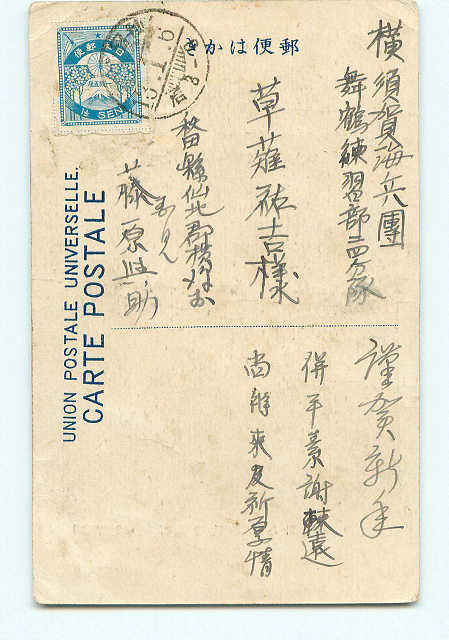 郵便はかき
横須賀海兵團
舞鶴練習部二四分隊
草薙祐吉様
縣仙北郡
藤原
謹賀新年
併平素謝疎遠
尚将来友新厚情
UNION POSTALE UNIVERSELLE.
CARTE POSTALE
日本郵便
1½ SEN